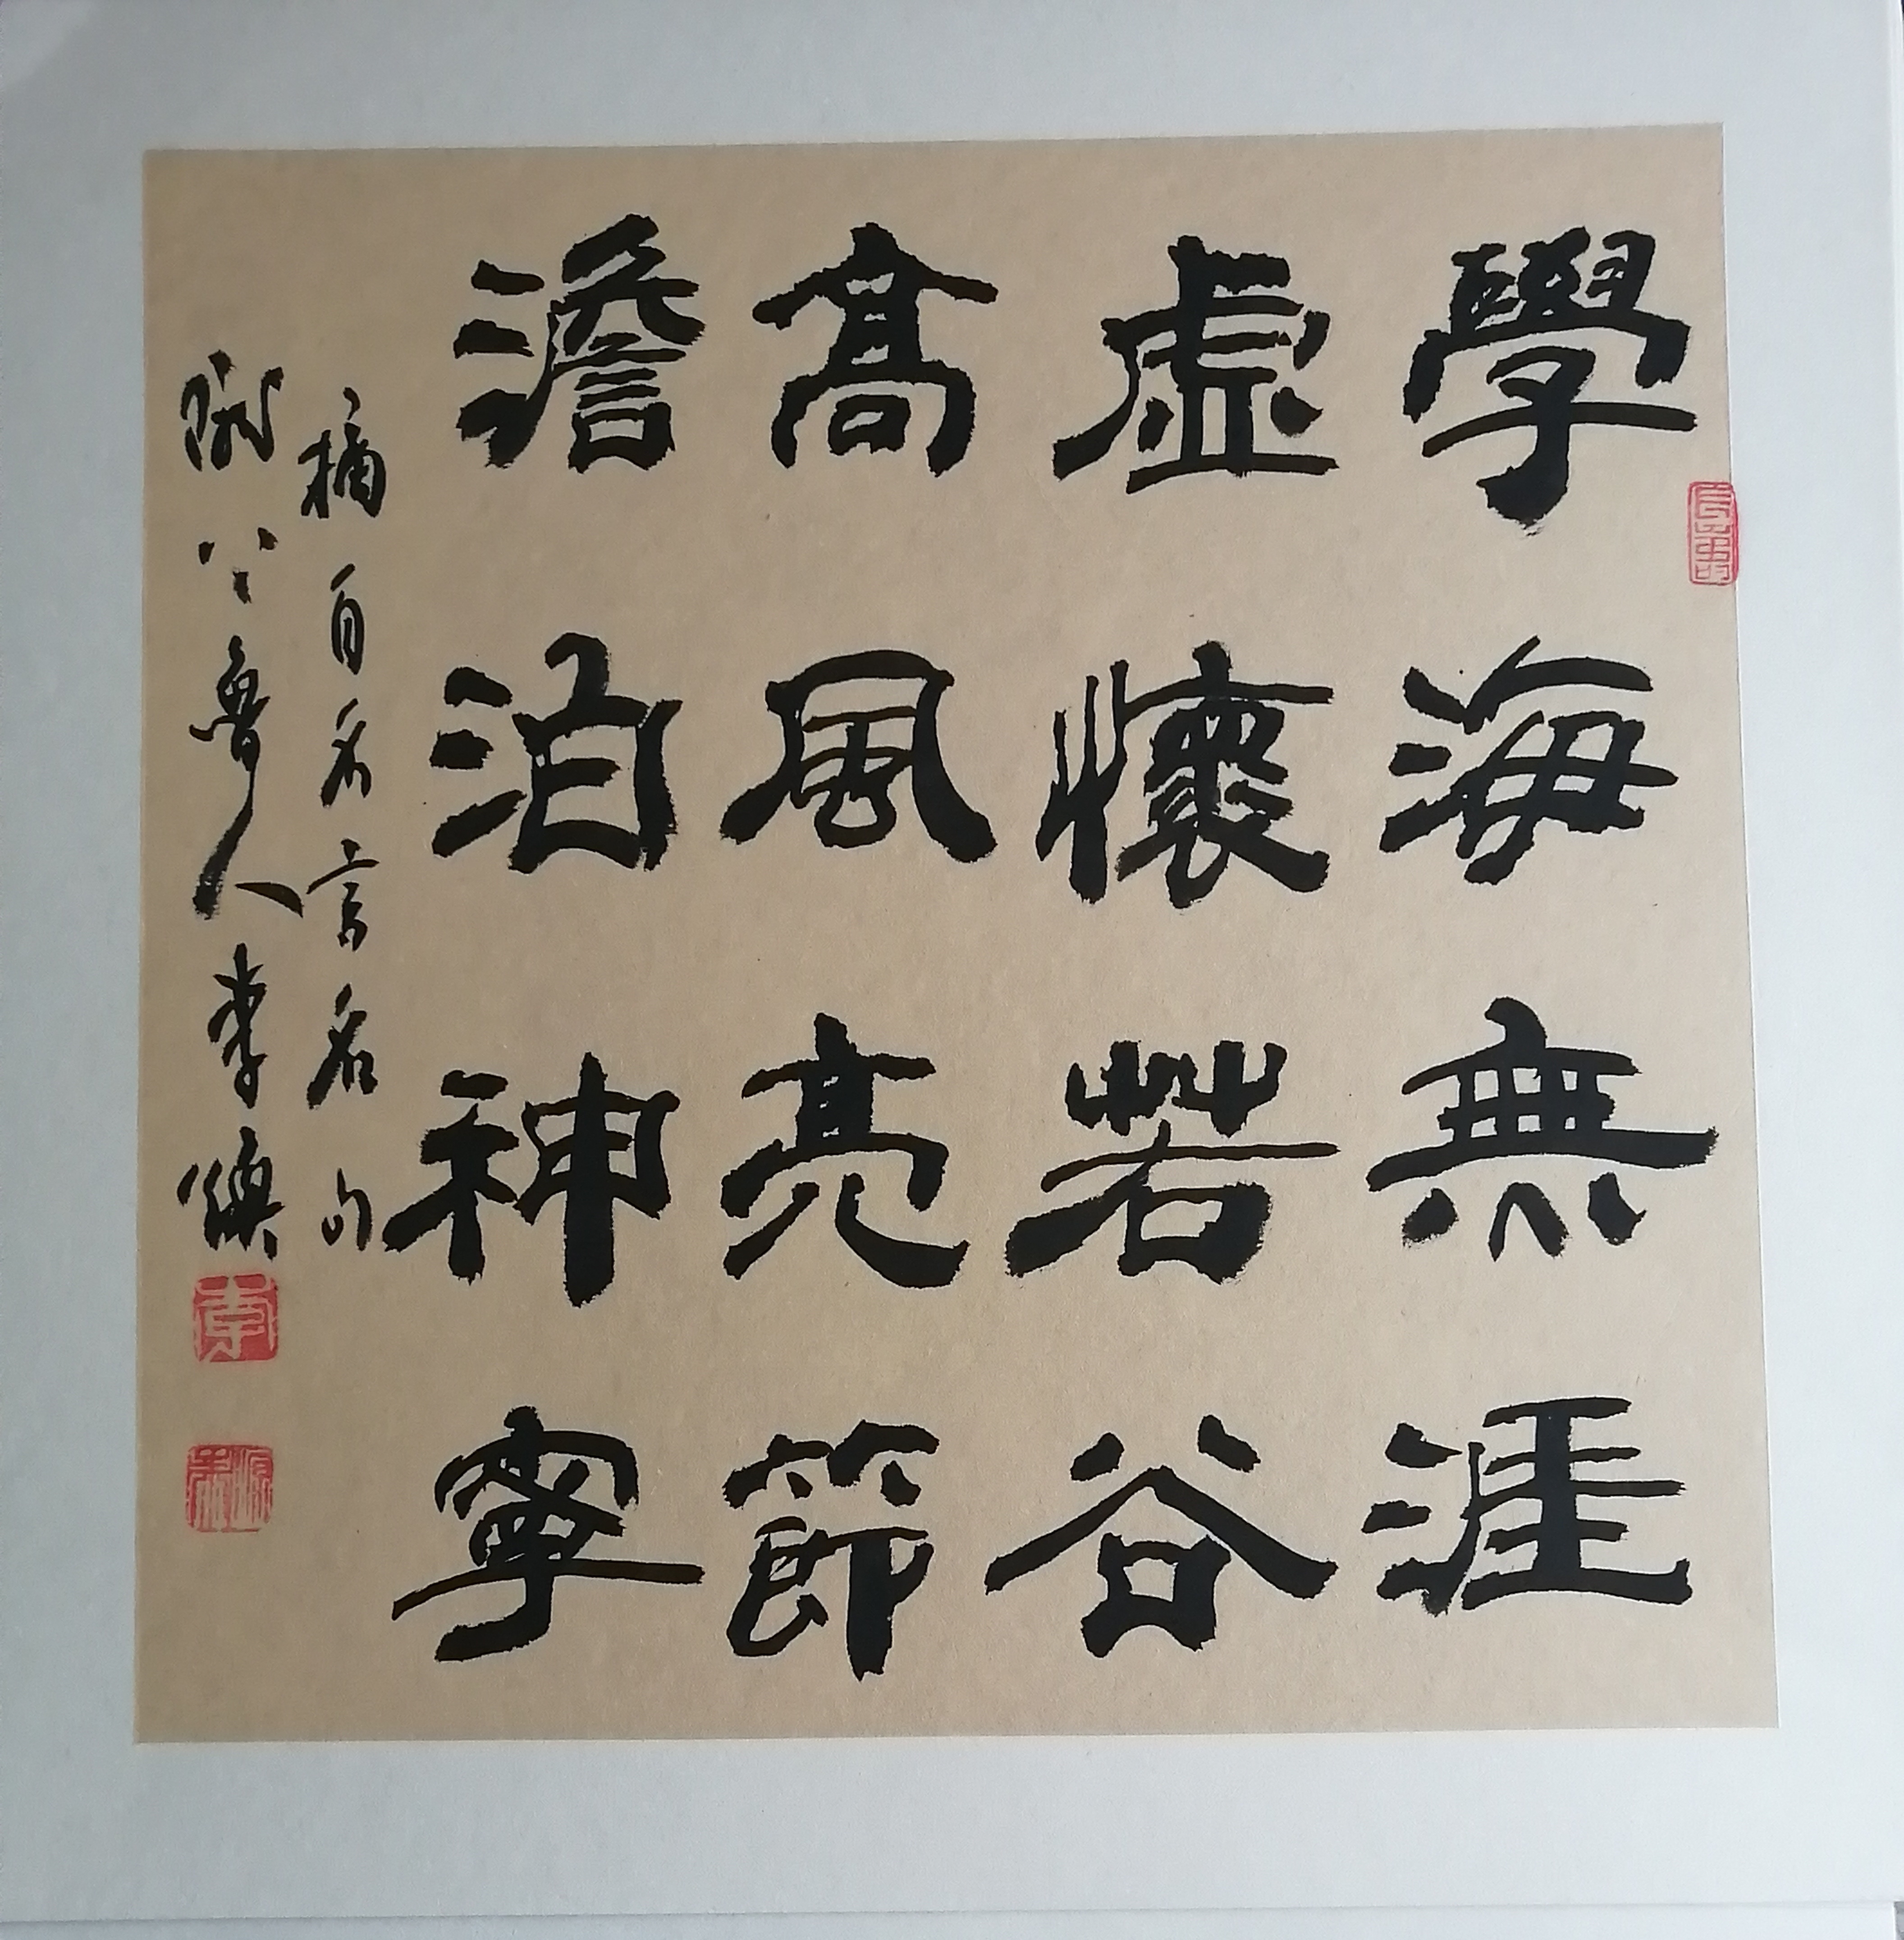 學海無涯
虛懷若谷
高風亮節
澹泊神寧
摘自名言名句
魯人李